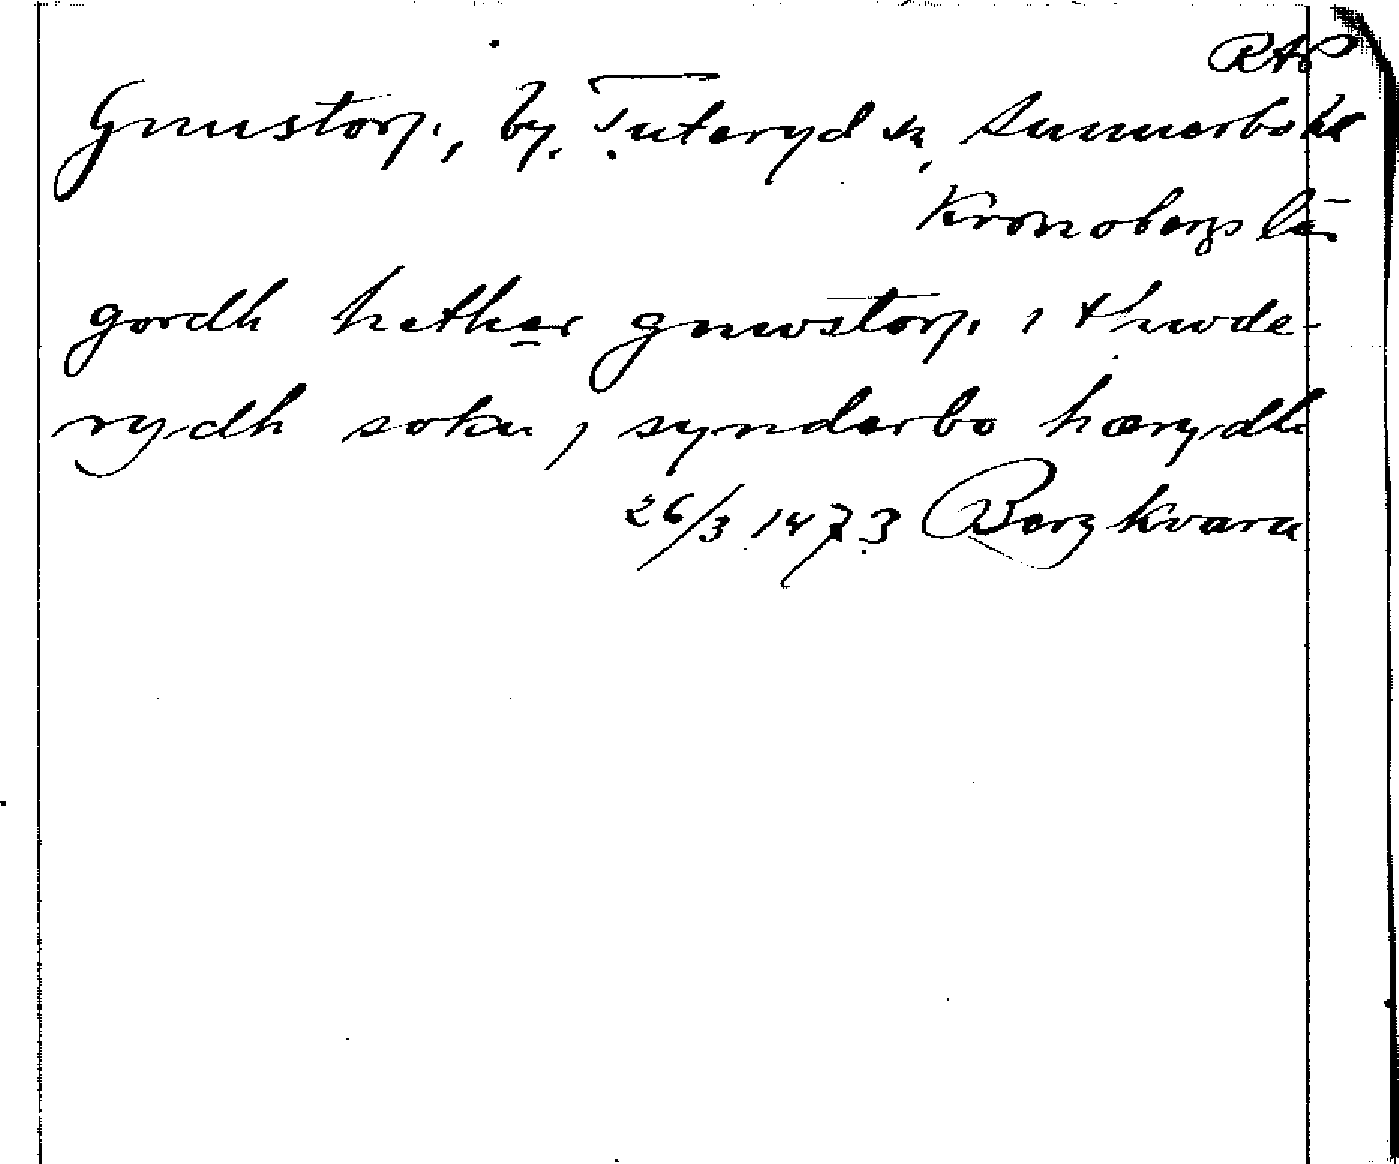 RAP
Gnustorp, by, Tuteryd sn, Sunnerbo hd
Kronobergs län
gordh hether gnwstorp i thwde-
rydh sokn, synderbo hærydh
26/3 1473 Bergkvara